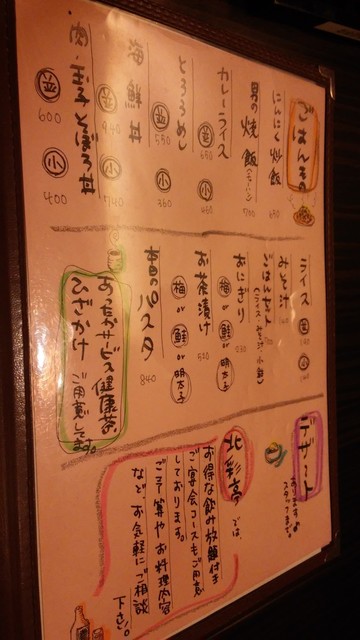 ごはんもの
にんにく炒飯
男の焼飯(チャーハン) 700 650
カレーライス 並 650 小 450
とろろめし 並 550 小 350
海鮮丼 並 940 小 740
肉・玉子とぼろ丼 並 600 小 400
ライス
みそ汁
ごはんセット(ライス・みそ汁・小鉢)
おにぎり 梅 or 鮭 or 明太子
お茶漬け 520 梅 or 鮭 or 明太子
本日のパスタ 840
あったかサービス健康茶
ひざかけ ご用意してます。
デザート
あります♪
スタッフまで。
北彩亭では、
お得な飲み放題付き
ご宴会コースもご用意
しております。
ご予算やお料理内容
など、お気軽にご相談
下さい。